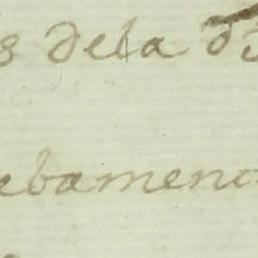 s dela
ebameno